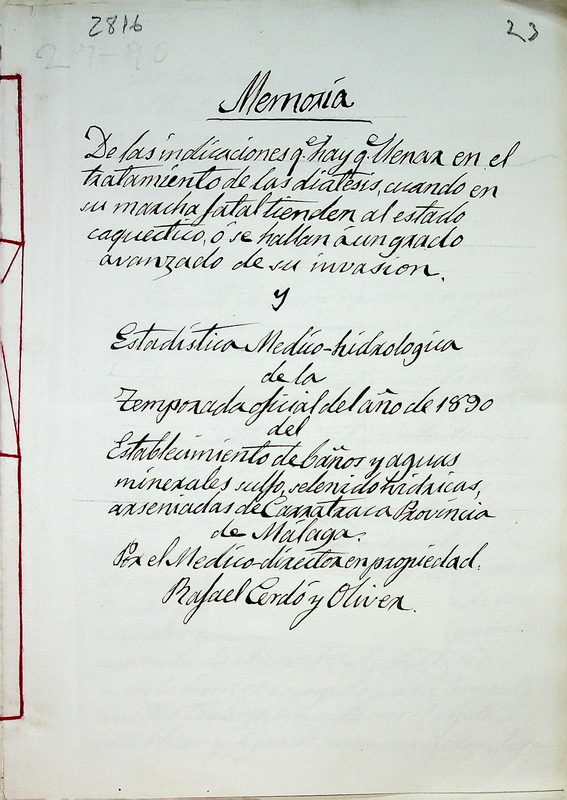 2816
23
27-90
Memoria
De las indicaciones q.e hay q.e llenar en el
tratamiento de las diatesis, cuando en
su marcha fatal tienden al estado
caquectico, ó se hallan á un grado
avanzado de su invasion.
y
Estadistica Medico-hidrologica
de la
Temporada oficial del año de 1890
del
Establecimiento de baños y aguas
minerales sulfo, selenido hidricas,
arseniadas de Carratraca Provincia
de Málaga.
Por el Medico-director en propiedad.
Rafael Cerdó y Oliver.